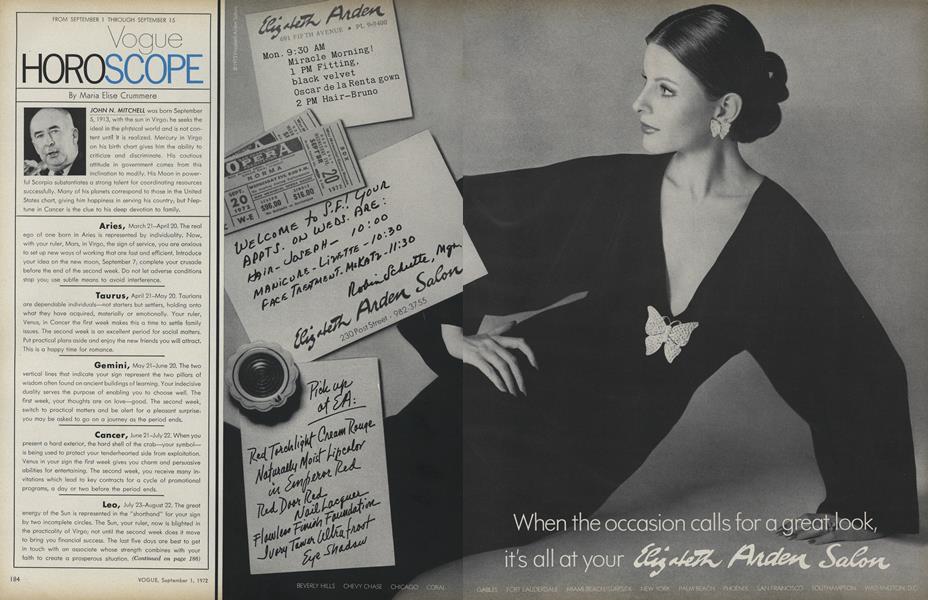 FROM SEPTEMBER 1 THROUGH SEPTEMBER 15
Vogue
HOROSCOPE
By Maria Elise Crummere
JOHN N. MITCHELL was born September
5, 1913, with the sun in Virgo; he seeks the
ideal in the physical world and is not con-
tent until it is realized. Mercury in Virgo
on his birth chart gives him the ability to
criticize and discriminate. His cautious
attitude in government comes from this
inclination to modify. His Moon in power-
ful Scorpio substantiates a strong talent for coordinating resources
successfully. Many of his planets correspond to those in the United
States chart, giving him happiness in serving his country; but Nep-
tune in Cancer is the clue to his deep devotion to family.
Aries, March 21–April 20. The real
ego of one born in Aries is represented by individuality. Now,
with your ruler, Mars, in Virgo, the sign of service, you are anxious
to set up new ways of working that are fast and efficient. Introduce
your idea on the new moon, September 7; complete your crusade
before the end of the second week. Do not let adverse conditions
stop you; use subtle means to avoid interference.
Taurus, April 21–May 20. Taurians
are dependable individuals—not starters but settlers, holding onto
what they have acquired, materially or emotionally. Your ruler,
Venus, in Cancer the first week makes this a time to settle family
issues. The second week is an excellent period for social matters.
Put practical plans aside and enjoy the new friends you will attract.
This is a happy time for romance.
Gemini, May 21–June 20. The two
vertical lines that indicate your sign represent the two pillars of
wisdom often found on ancient buildings of learning. Your indecisive
duality serves the purpose of enabling you to choose well. The
first week, your thoughts are on love—good. The second week,
switch to practical matters and be alert for a pleasant surprise:
you may be asked to go on a journey as the period ends.
Cancer, June 21–July 22. When you
present a hard exterior, the hard shell of the crab—your symbol—
is being used to protect your tenderhearted side from exploitation.
Venus in your sign the first week gives you charm and persuasive
abilities for entertaining. The second week, you receive many in-
vitations which lead to key contracts for a cycle of promotional
programs, a day or two before the period ends.
Leo, July 23–August 22. The great
energy of the Sun is represented in the "shorthand" for your sign
by two incomplete circles. The Sun, your ruler, now is blighted in
the practicality of Virgo; not until the second week does it move
to bring you financial success. The last five days are best to get
in touch with an associate whose strength combines with your
faith to create a prosperous situation. (Continued on page 186)
184
VOGUE, September 1, 1972
Elizabeth Arden
691 FIFTH AVENUE • PL 9-0400
Mon. 9:30 AM
Miracle Morning!
1 PM Fitting,
black velvet
Oscar de la Renta gown
2 PM Hair-Bruno
OPERA
NORMA
SEPT.
20
1972
W-E
$96.00
$16.00
20
1972
BOX
WELCOME to S.F.! YOUR
APPTS. ON WEDS. ARE:
HAIR- JOSEPH - 10:00
MANICURE - LIZETTE - 10:30
FACE TREATMENT. McKATO - 11:30
Robin Schutte, Mgr.
Elizabeth Arden Salon
230 Post Street · 982-3755
Pick up
at EA:
Red Torchlight Cream Rouge
Naturally Moist Lipcolor
in Emperor Red
Red Door Red
Nail Lacquer
Flawless Finish Foundation
Ivory Tower Ultra Frost
Eye Shadow
When the occasion calls for a great look,
it's all at your Elizabeth Arden Salon
BEVERLY HILLS CHEVY CHASE CHICAGO CORAL GABLES FORT LAUDERDALE MIAMI BEACH/SURFSIDE NEW YORK PALM BEACH PHOENIX SAN FRANCISCO SOUTHAMPTON WASHINGTON, D.C.